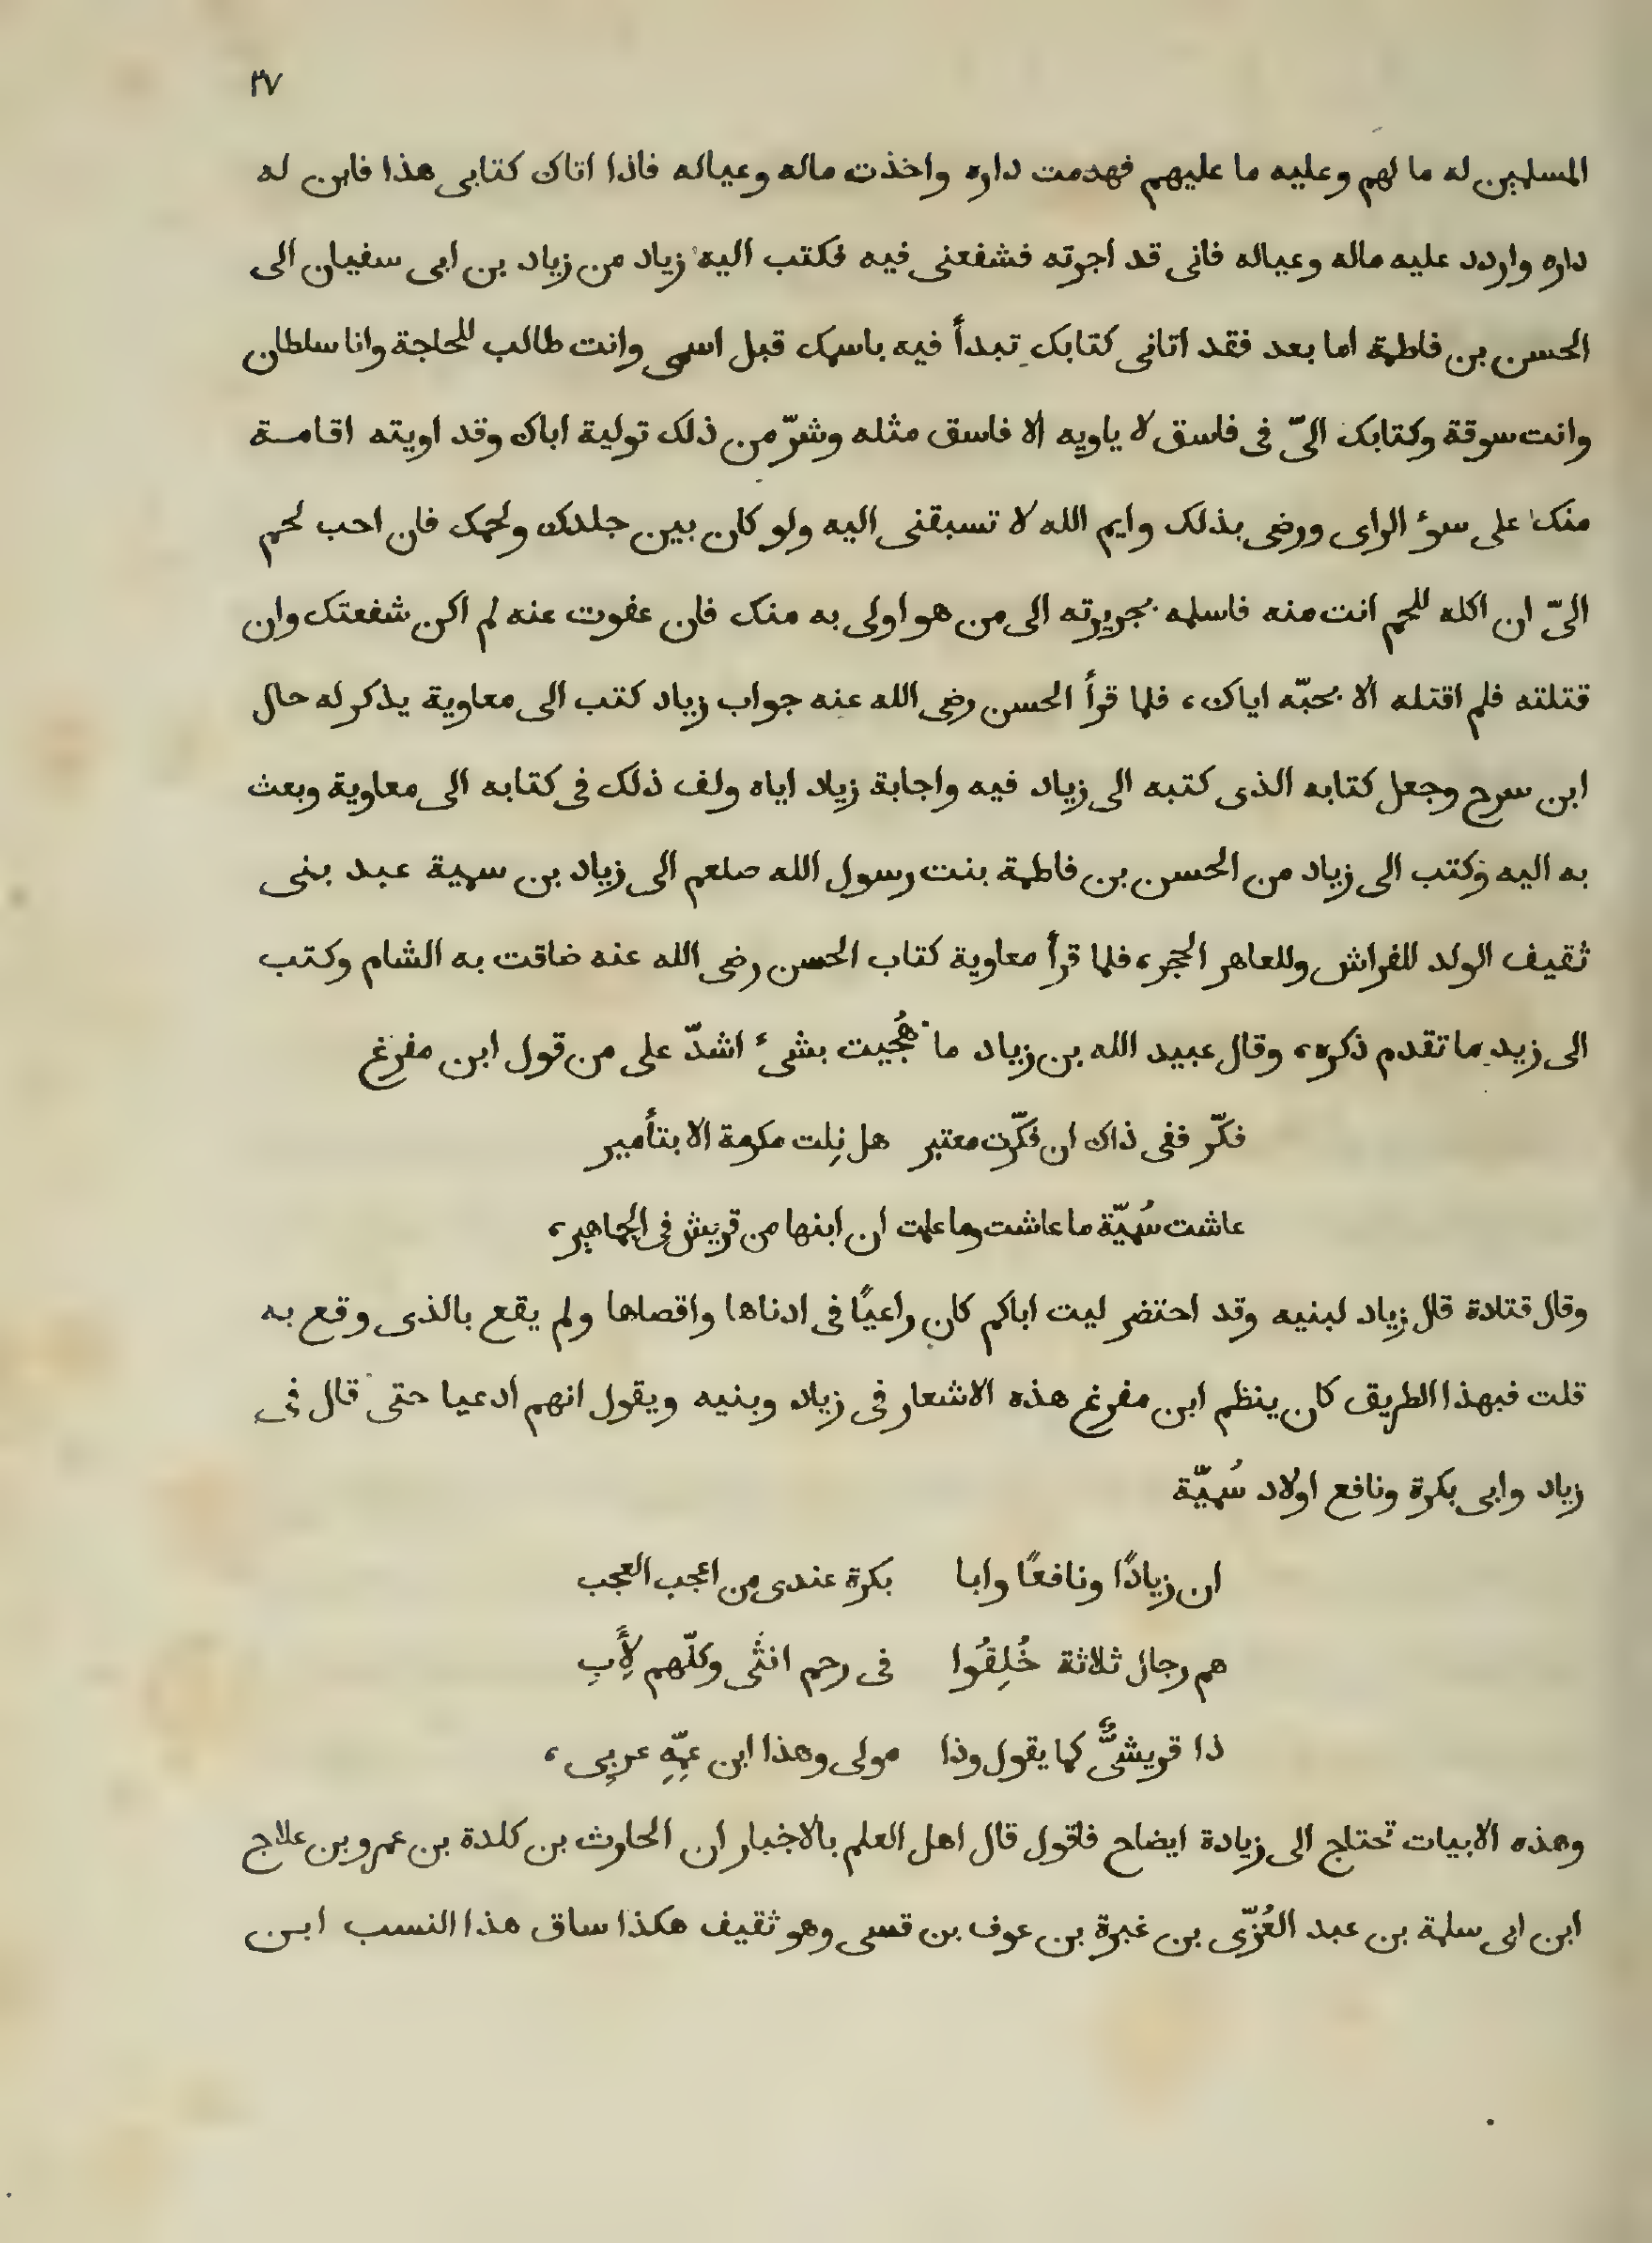 ٣٧
المسلمين له ما لهم وعليه ما عليهم فهدمت داره واخذت ماله وعياله فاذا اتاك كتابى هذا فابن له
داره واردد عليه ماله وعياله فانى قد اجرته فشفعنى فيه فكتب اليه زياد من زياد بن ابى سفيان الى
الحسن بن فاطمة اما بعد فقد اتانى كتابك تبدأ فيه باسمك قبل اسمى وانت طالب للحاجة وانا سلطان
وانت سوقة وكتابك الىّ فى فاسق لا ياويه الا فاسق مثله وشرّ من ذلك توليه اباك وقد اويته اقامة
منك على سوء الراى ورضى بذلك وايم الله لا تسبقنى اليه ولو كان بين جلدك ولحمك فان احب لحم
الىّ ان اكله للحم انت منه فاسلمه بجريرته الى من هو اولى به منك فان عفوت عنه لم اكن شفعتك وان
قتلته فلم اقتله الا بحبّه اياك، فلما قرأ الحسن رضى الله عنه جواب زياد كتب الى معاوية يذكر له حال
ابن سرح وجعل كتابه الذى كتبه الى زياد فيه واجابة زياد اياه ولف ذلك فى كتابه الى معاوية وبعث
به اليه وكتب الى زياد من الحسن بن فاطمة بنت رسول الله صلعم الى زياد بن سمية عبد بنى
ثقيف الولد للفراش وللعاهر الحجر، فلما قرأ معاوية كتاب الحسن رضى الله عنه ضاقت به الشام وكتب
الى زيد ما تقدم ذكره، وقال عبيد الله بن زياد ما هُجيت بشىء اشدّ على من قول ابن مفرغ
فكّر ففى ذاك ان فكّرت معتبر هل نِلت مكرمة الا بتأمير
عاشت سُميّة ما عاشت وما علمت ان ابنها من قريش فى الجماهير،
وقال قتادة قال زياد لبنيه وقد احتضر ليت اباكم كان راعيًا فى ادناها واقصاها ولم يقع بالذى وقع به
قلت فبهذا الطريق كان ينظم ابن مفرغ هذه الاشعار فى زياد وبنيه ويقول انهم ادعيا حتى قال فى
زياد وابى بكرة ونافع اولاد سُميّة
ان زيادًا ونافعًا وابا بكرة عندى من اعجب العجب
هم رجال ثلاثة خُلِقُوا فى رحم انثى وكلّهم لأَبِ
ذا قريشىٌّ كما يقول وذا مولى وهذا ابن عمّهِ عربى،
وهذه الابيات تحتاج الى زيادة ايضاح فاقول قال اهل العلم بالاخبار ان الحارث بن كلدة بن عمرو بن علاج
ابن ابى سلمة بن عبد العُزّى بن غبرة بن عوف بن قسى وهو ثقيف هكذا ساق هذا النسب ابن